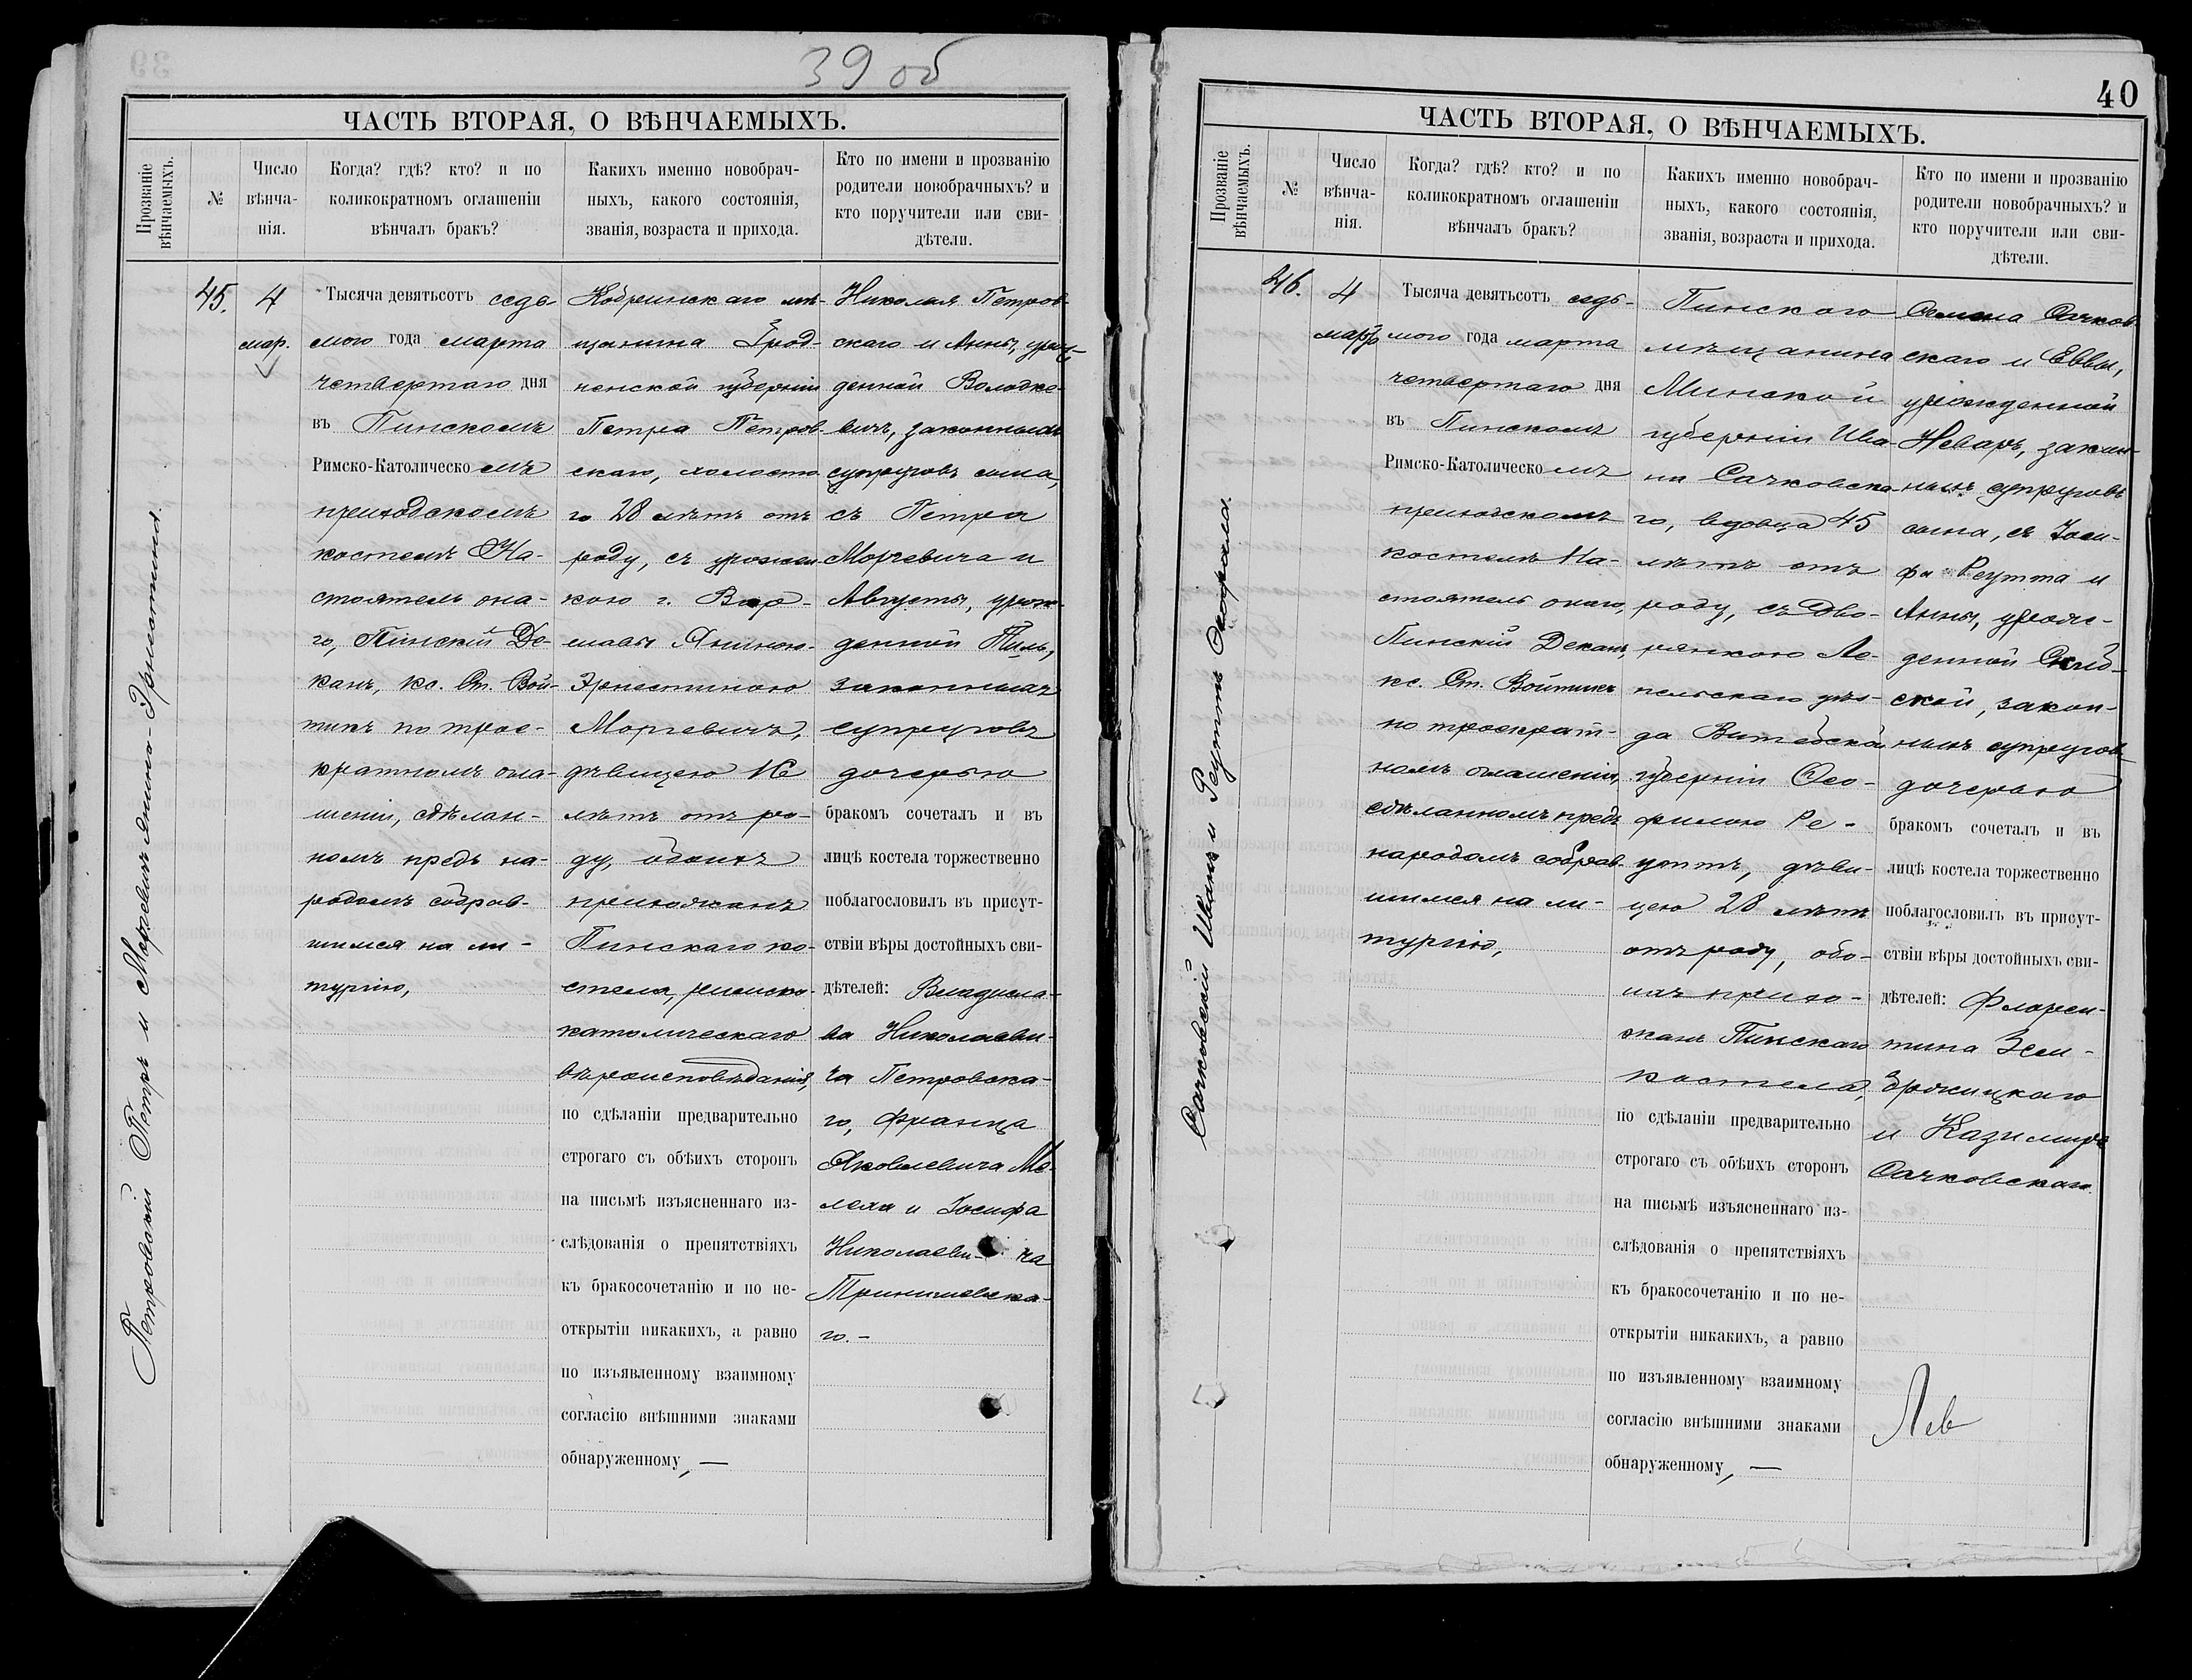 39 об
ЧАСТЬ ВТОРАЯ, О ВѢНЧАЕМЫХЪ.
Прозваніе
вѣнчаемыхъ.
№
Число
вѣнча-
нія.
Когда? гдѣ? кто? и по
коликократномъ оглашеніи
вѣнчалъ бракъ?
Какихъ именно новобрач-
ныхъ, какого состоянія,
званія, возраста и прихода.
Кто по имени и прозванію
родители новобрачныхъ? и
кто поручители или сви-
дѣтели.
Петровскій Петръ и Моргевичъ Янина-Эрнестина.
45.
4
мар.
Тысяча девятьсотъ седь-
мого года марта
четвертаго дня
въ Пинскомъ
Римско-Католическомъ
приходскомъ
костелѣ На-
стоятель она-
го, Пинскій Де-
канъ, кс. Ст. Вой-
тикъ по трое-
кратномъ огла-
шеніи, сдѣлан-
номъ предъ на-
родомъ собрав-
шимся на ли-
тургію,
Кобринскаго мѣ-
щанина Грод-
ненской губерніи
Петра Петров-
скаго, холосто
го 28 лѣтъ отъ
роду, съ урожен-
кою г. Вар-
шавы Яниною-
Эрнестиною
Моргевичъ,
дѣвицею
лѣтъ отъ ро-
ду, обоихъ
прихожанъ
Пинскаго ко-
стела, римско-
католическаго
вѣроисповѣданія,
по сдѣланіи предварительно
строгаго съ обѣихъ сторонъ
на письмѣ изъясненнаго из-
слѣдованія о препятствіяхъ
къ бракосочетанію и по не-
открытіи никакихъ, а равно
по изъявленному взаимному
согласію внѣшними знаками
обнаруженному, —
Николая Петров-
скаго и Анны, урож-
денной Володке-
вичъ, законныхъ
супруговъ сына,
съ Петра
Моргевича и
Августы, урож-
денной Пиль,
законныхъ
супруговъ
дочерью
бракомъ сочеталъ и въ
лицѣ костела торжественно
поблагословилъ въ присут-
ствіи вѣры достойныхъ сви-
дѣтелей: Владисла-
ва Николаеви-
ча Петровска-
го, Франца
Яковлевича Ме-
леха и Іосифа
Николаеви- ча
Тринишевска-
го. -
40
ЧАСТЬ ВТОРАЯ, О ВѢНЧАЕМЫХЪ.
Прозваніе
вѣнчаемыхъ.
№
Число
вѣнча-
нія.
Когда? гдѣ? кто? и по
коликократномъ оглашеніи
вѣнчалъ бракъ?
Какихъ именно новобрач-
ныхъ, какого состоянія,
званія, возраста и прихода.
Кто по имени и прозванію
родители новобрачныхъ? и
кто поручители или сви-
дѣтели.
Сачковскій Иванъ и Реуттъ
46.
4
марта
Тысяча девятьсотъ седь-
мого года марта
четвертаго дня
въ Пинскомъ
Римско-Католическомъ
приходскомъ
костелѣ На-
стоятель онаго,
Пинскій Деканъ,
кс. Ст. Войтикъ
по троекрат-
номъ оглашеніи,
сдѣланномъ предъ
народомъ собрав-
шимся на ли-
тургію,
Пинскаго
мѣщанина
Минской
губерніи Ива-
на Сачковска-
го, вдовца 45
лѣтъ отъ
роду, съ дво-
рянкою Ле-
пельскаго уѣз-
да Витебской
губерніи Фео-
филою Ре-
уттъ, дѣви-
цею 28 лѣтъ
отъ роду, обо-
ихъ прихо-
жанъ Пинскаго
костела,
по сдѣланіи предварительно
строгаго съ обѣихъ сторонъ
на письмѣ изъясненнаго из-
слѣдованія о препятствіяхъ
къ бракосочетанію и по не-
открытіи никакихъ, а равно
по изъявленному взаимному
согласію внѣшними знаками
обнаруженному, —
Семена Сачков-
скаго и Еввы,
урожденной
Неваръ, закон-
ныхъ супруговъ
сына, съ Іоси-
фа Реутта и
Анны, урож-
денной
ской, закон-
ныхъ супруговъ
дочерью
бракомъ сочеталъ и въ
лицѣ костела торжественно
поблагословилъ въ присут-
ствіи вѣры достойныхъ сви-
дѣтелей: Флорен-
тина Зем-
брожицкаго
и Казимира
Сачковскаго.